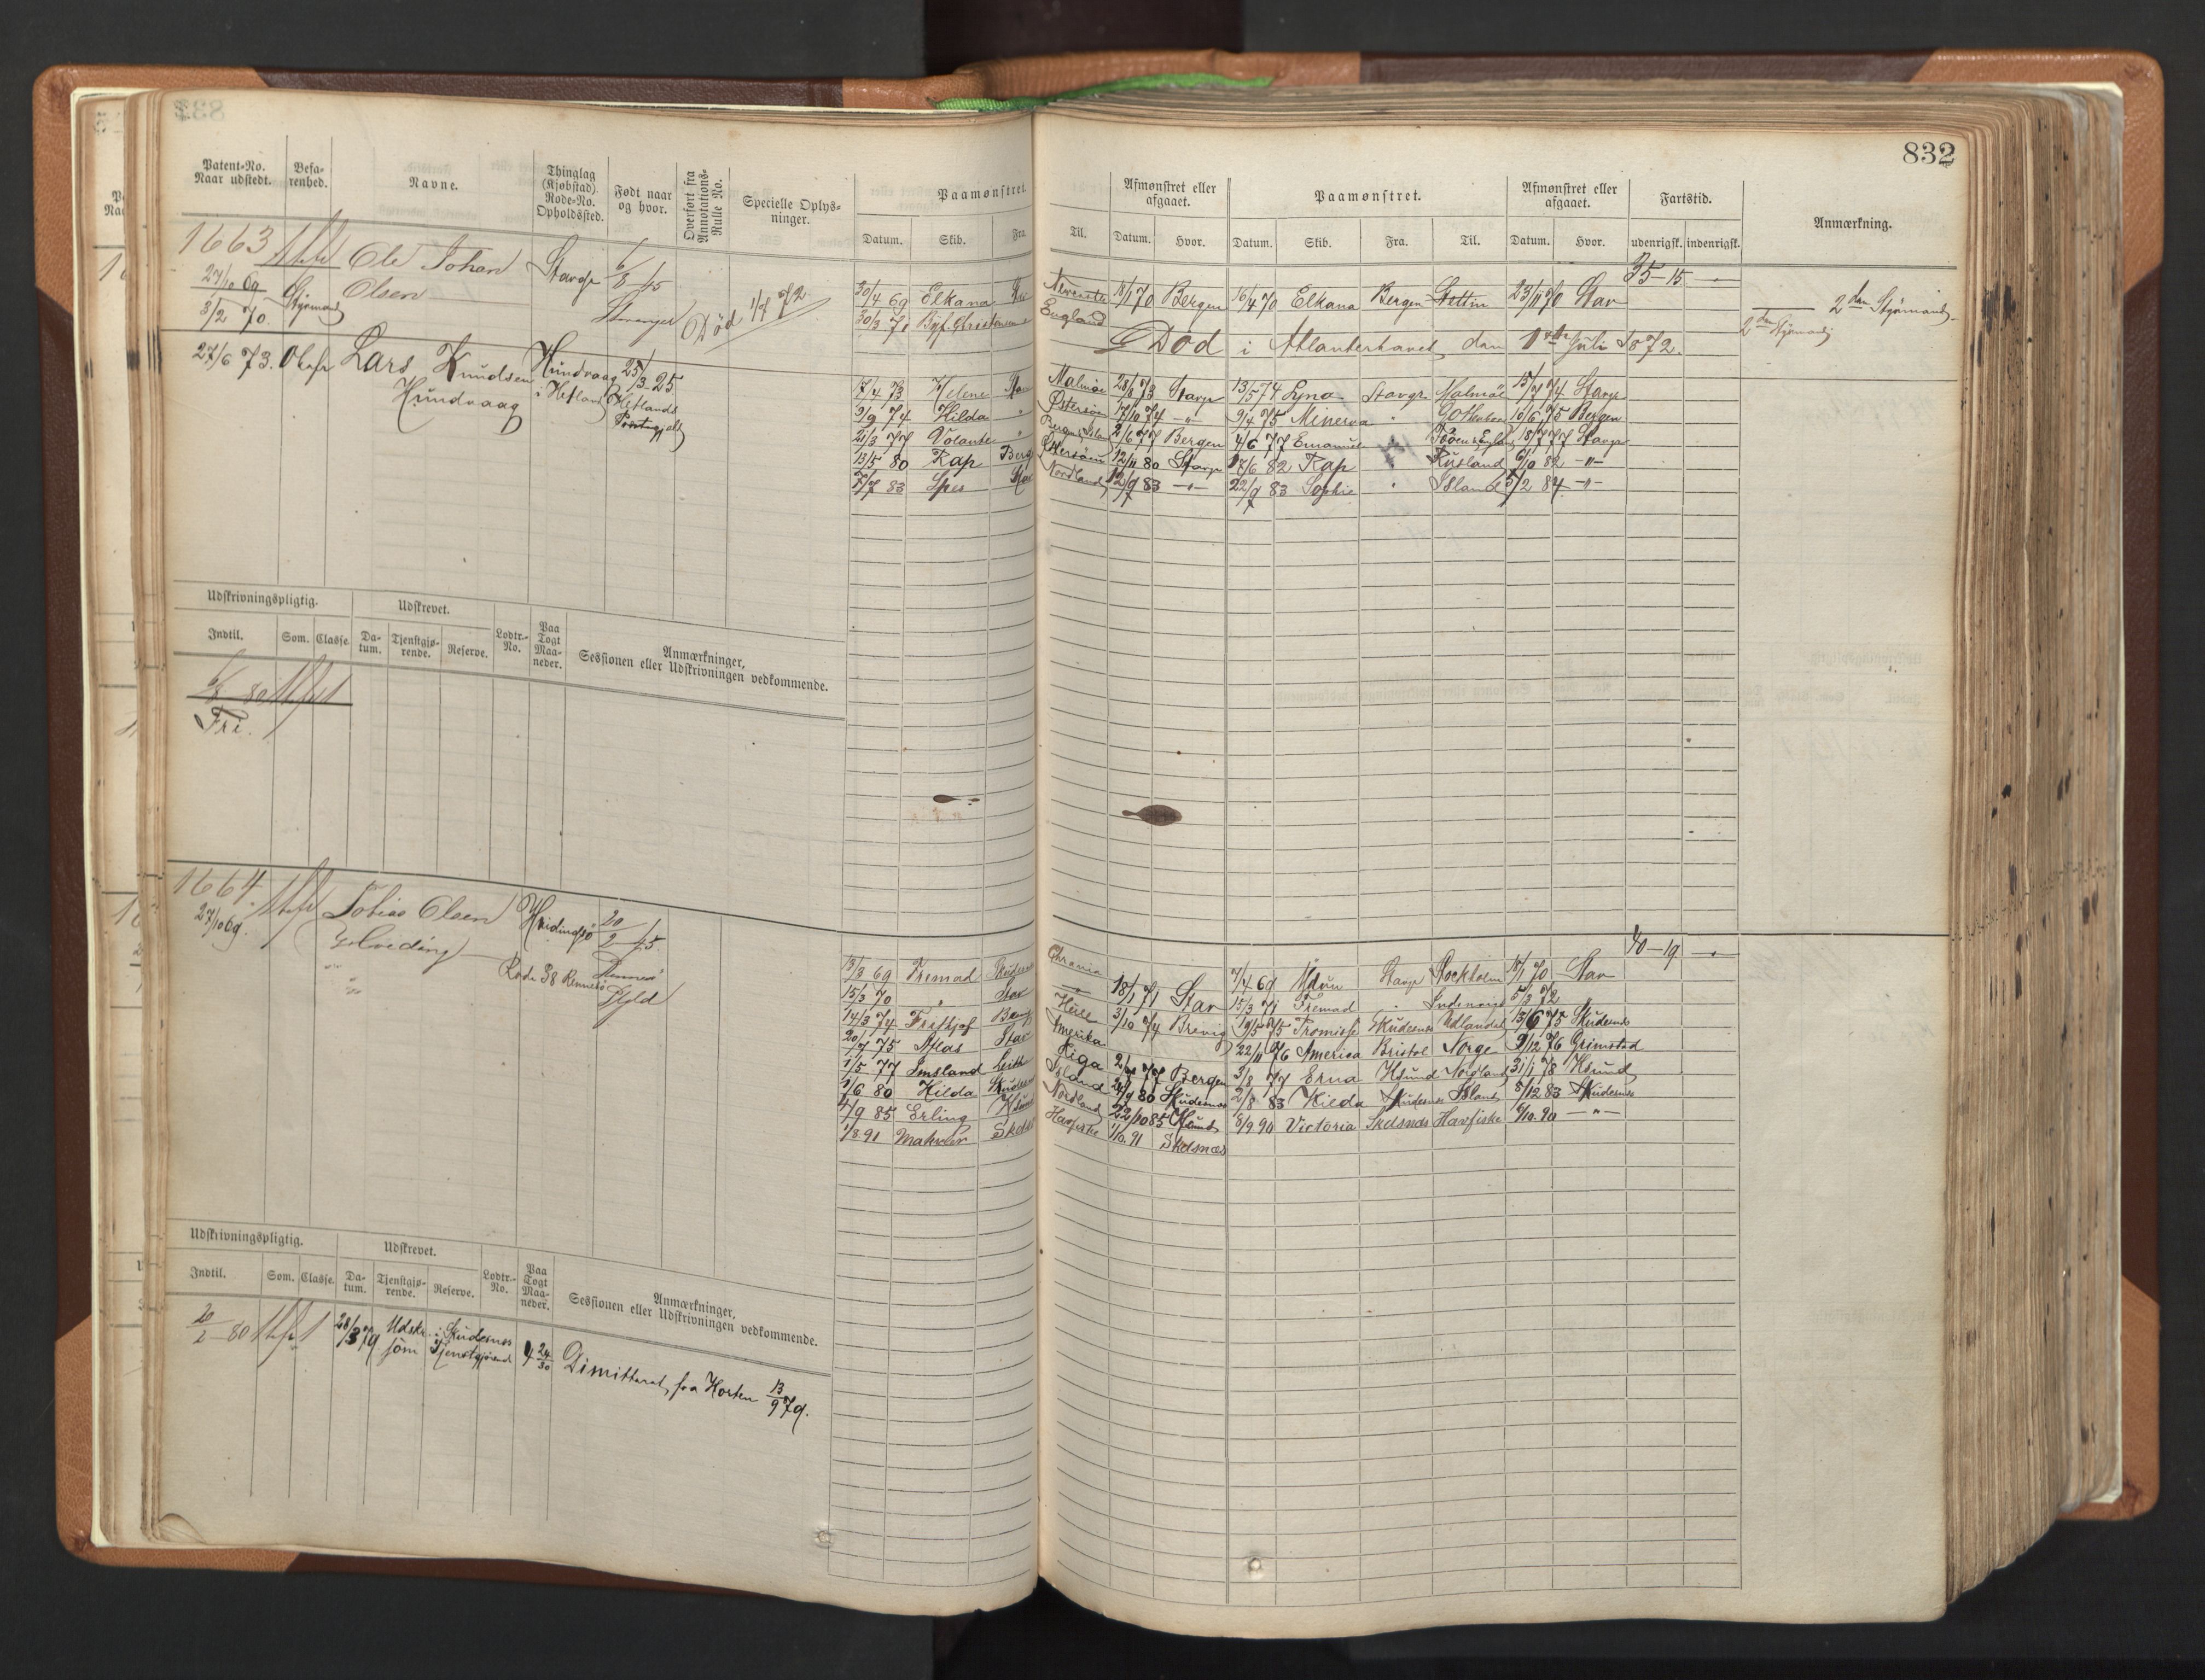 832
Patent-No.
Naar udstedt.
Befa-
renhed.
Navne.
Thinglag
(Kjøbstad).
Rode-No.
Opholdssted.
Født naar
og hvor.
Overført fra
Annotations-
Rulle No.
Specielle Oplys-
ninger.
Paamønstret.
Datum. Skib. Fra.
Til.
Afmønstret eller
afgaaet.
Datum. Hvor.
Paamønstret.
Datum. Skib. Fra. Til.
Afmønstret eller
afgaaet.
Datum. Hvor.
Fartstid.
udenrigsk. indenrigsk.
Anmærkning.
1663 Ole Johan Stavgr 6/8 45
27/10 69 Olsen Stavanger
3/2 70. Styrmand
Død 1/7 72
35-15
30/4 69 Elkana
18/1 70 Bergen 16/4 70 Elkana Bergen Stettin 23/11 70 Stav
2den Styrmand
30/3 71 England
2den Styrmand
Død i Atlanterhavet den 1ste Juli 1872.
27/6 73. Lars Knudsen Hundvaag 25/3 25
Hundvaag i Hetland Hetlands
Præstegjeld
17/4 73 Helene Malmöe 28/8 73 Stavgr 13/5 74 Stavgr Malmöe 15/7 74 Stavgr
9/9 74 Hilda " Østersöe 17/10 74 " 9/4 75 Minerva " 10/6 75 Bergen
21/3 77 Volante " 2/6 77 Bergen 4/6 77 Emanuel 18/7 77 Stavgr
13/5 80 Kap Berg Østersöen 12/11 80 Stavgr 17/6 82 Kap " Rusland 6/10 82 -"-
7/7 83 Spes Nordland 12/9 83 -"- 22/9 83 Sophie " Island 5/2 84 -"-
Udskrivningspligtig.
Udskrevet.
Indtil. Som. Classe.
Da-
tum.
Tjenstgjø-
rende.
Reserve.
Lodtr.-
No.
Paa
Togt
Maa-
neder.
Anmærkninger,
Sessionen eller Udskrivningen vedkommende.
6/8 80
Fri.
1664. Tobias Olsen Hvidingsö 20/2 45
27/10 69. Hveding
Rode 38 Rennesö Rennesö
Gjeld
40-19
13/3 69 Fremad Skudesn Chrania 7/4 69 Stavgr Stockholm 15/1 70 Stav
15/3 70 " Stav 18/1 71 Stav 15/3 71 Fremad " 5/3 72 "
14/3 74 Fritjof 3/10 74 Brevig 19/5 75 Promisse Skudesnes Udlandet 13/6 75 Skudesnes
20/7 75 Atlas Stav Amerika 22/11 76 America Bristol Norge 9/12 76 Grimstad
1/5 77 Leith Riga 77 Bergen 3/8 77 Erna Hsund Nordland 31/1 78 Hsund
1/6 80 Hilda Island 24/9 80 Skudesnes 2/8 83 Hilda Skudesnes Island 5/12 83 Skudesnes
4/9 85 Erling Nordland 22/10 85 Hsund 8/9 90 Victoria Skdsnæs Havfiske 6/10.90 -"-
1/8.91 Havfiske 1/10.91 Skdsnæs
Udskrivningspligtig.
Udskrevet.
Indtil. Som. Classe.
Da-
tum.
Tjenstgjø-
rende.
Reserve.
Lodtr.-
No.
Paa
Togt
Maa-
neder.
Anmærkninger,
Sessionen eller Udskrivningen vedkommende.
20/2 80 28/3 79 Udskr. i Skudesnes
som Tjenstgjørende 4 24/30 Dimitteret fra Horten 13/9 79.